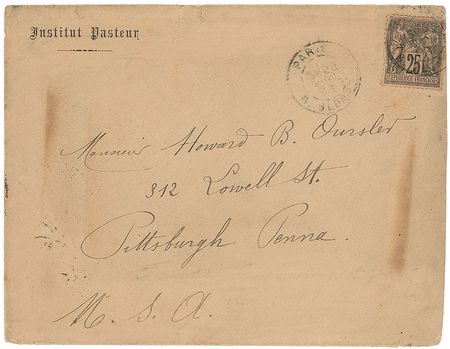 Institut Pasteur
PARIS
25
REPUBLIQUE FRANÇAISE
Monsieur Howard B. Oursler
312 Lowell St.
Pittsburgh Penna.
U. S. A.